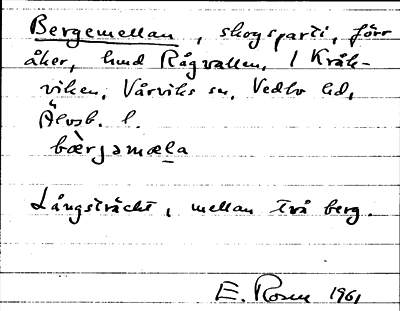 Bergemellan, skogsparti, förr
åker, hmd Rågvallen, 1 Kråk-
viken, Vårviks sn, Vedbo hd,
Älvsb. l.
bæ̀rjəmæla
Långsträckt, mellan två berg.
E. Rosen 1961